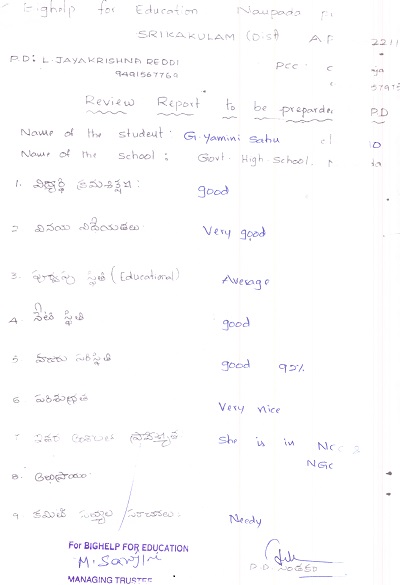 Bighelp for Education Naupada
SRIKAKULAM (Dist) A.P
2211
P.D: L. JAYAKRISHNA REDDI PCC: c
9491567769
Review Report to be preparde P.D
Name of the student: G. Yamini Sahu cl 10
Name of the school: Govt. High School.
1. విద్యార్థి క్రమశిక్షణ: good
2. వినయ విధేయతలు Very good
3. పూర్వపు స్థితి (Educational) Average
4. నేటి స్థితి good
5. హాజరు పరిస్థితి good 92%
6 పరిశుభ్రత Very nice
7 ఇతర She is in NCC
NGC
8. అభిప్రాయం
9. కమిటీ సభ్యుల సూచనలు. Needy
For BIGHELP FOR EDUCATION
P.D. సంతకం
MANAGING TRUSTEE